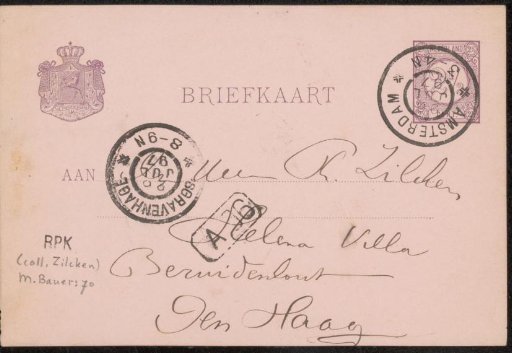 BRIEFKAART
AMSTERDAM
AAN
Heer Ph. Zilcken
'SGRAVENHAGE
JUL
97
8-9N
Helena Villa
Bezuidenhout
Den Haag
RPK
(coll. Zilcken)
M. Bauer: 70